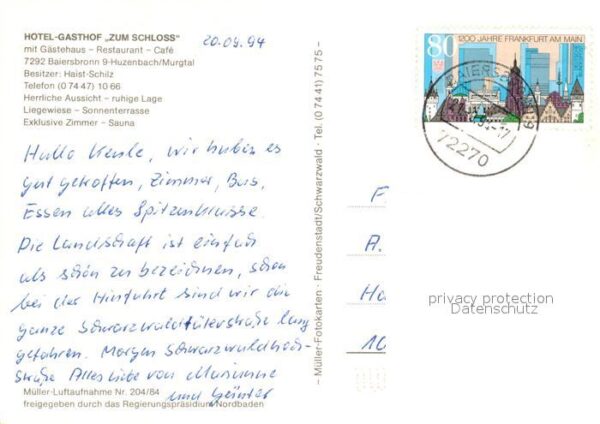 HOTEL-GASTHOF „ZUM SCHLOSS"
mit Gästehaus – Restaurant – Café
7292 Baiersbronn 9-Huzenbach/Murgtal
Besitzer: Haist-Schilz
Telefon (0 74 47) 10 66
Herrliche Aussicht – ruhige Lage
Liegewiese – Sonnenterrasse
Exklusive Zimmer – Sauna
20.09.94
Hallo Leute, wir haben es
gut getroffen, Zimmer, Bus,
Essen alles Spitzenklasse.
Die Landschaft ist einfach
als schön zu bezeichnen, schon
bei der Hinfahrt sind wir die
ganze Schwarzwaldtälerstraße lang
gefahren. Morgen Schwarzwaldhoch-
straße Alles Liebe von Marianne
und Günter
Müller-Luftaufnahme Nr. 204/84
freigegeben durch das Regierungspräsidium Nordbaden
– Müller-Fotokarten · Freudenstadt/Schwarzwald · Tel. (0 74 41) 75 75 –
80
1200 JAHRE FRANKFURT AM MAIN
72270
F
A.
Ha
10
privacy protection
Datenschutz